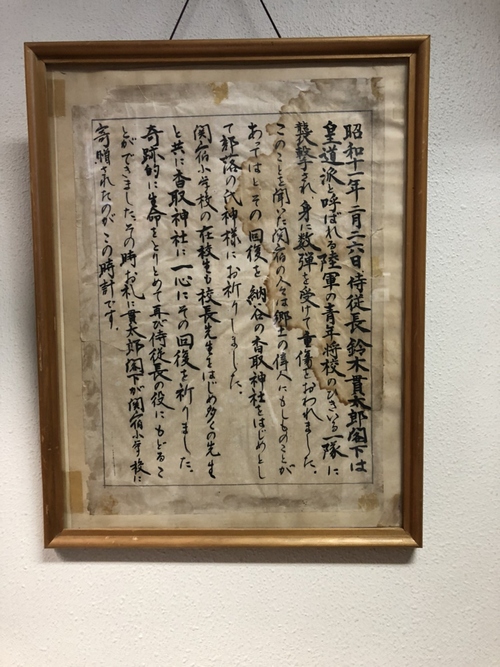 昭和十一年二月二六日侍従長鈴木貫太郎閣下は
皇道派と呼ばれる陸軍の青年将校のひきいる一隊に
襲撃され、身に数弾を受けて重傷をおわれました。
このことを聞いた関宿の人々は郷土の偉人にもしものことが
あってはとその回復を納谷の香取神社をはじめとし
て部落の氏神様にお祈りしました。
関宿小学校の在校生も校長先生をはじめ多くの先生
と共に香取神社に一心にその回復を祈りました。
奇跡的に生命をとりとめて再び侍従長の役にもどるこ
とができました。その時お礼に貫太郎閣下が関宿小学校に
寄贈されたのがこの時計です。